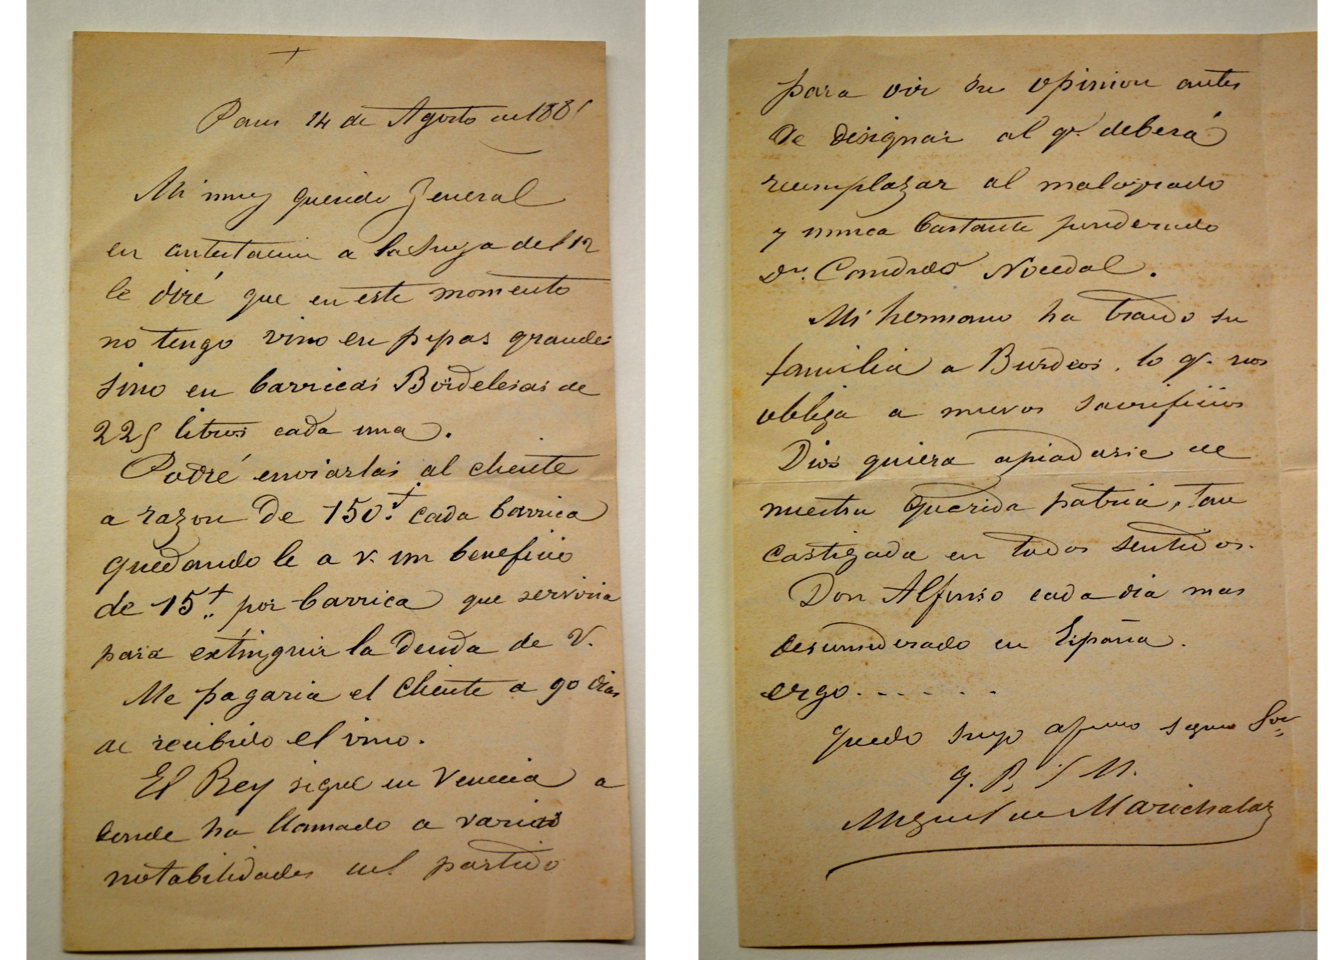 +
Paris 14 de Agosto de 188
Mi muy querido General
en contestacion a la suya del 12
le diré que en este momento
no tengo vino en pipas grandes
sino en barricas Bordelesas de
225 litros cada una.
Podré enviarlas al cliente
a razon de 150 f. cada barrica
quedando le a V. un beneficio
de 15 f. por barrica que serviria
para extinguir la deuda de V.
Me pagaria el cliente a 90 dias
de recibido el vino.
El Rey sigue en Venecia a
donde ha llamado a varias
notabilidades del partido
para oir su opinion antes
de designar al qe. deberá
reemplazar al malogrado
y nunca bastante ponderado
Dn. Candido Nocedal.
Mi hermano ha traido su
familia a Burdeos, lo qe. nos
obliga a nuevos sacrificios
Dios quiera apiadarse de
nuestra querida patria, tan
castigada en todos sentidos.
Don Alfonso cada dia mas
desconsiderado en España.
ergo.......
quedo suyo afmo seguro Sor
q. B. S. M.
Miguel de Marichalar